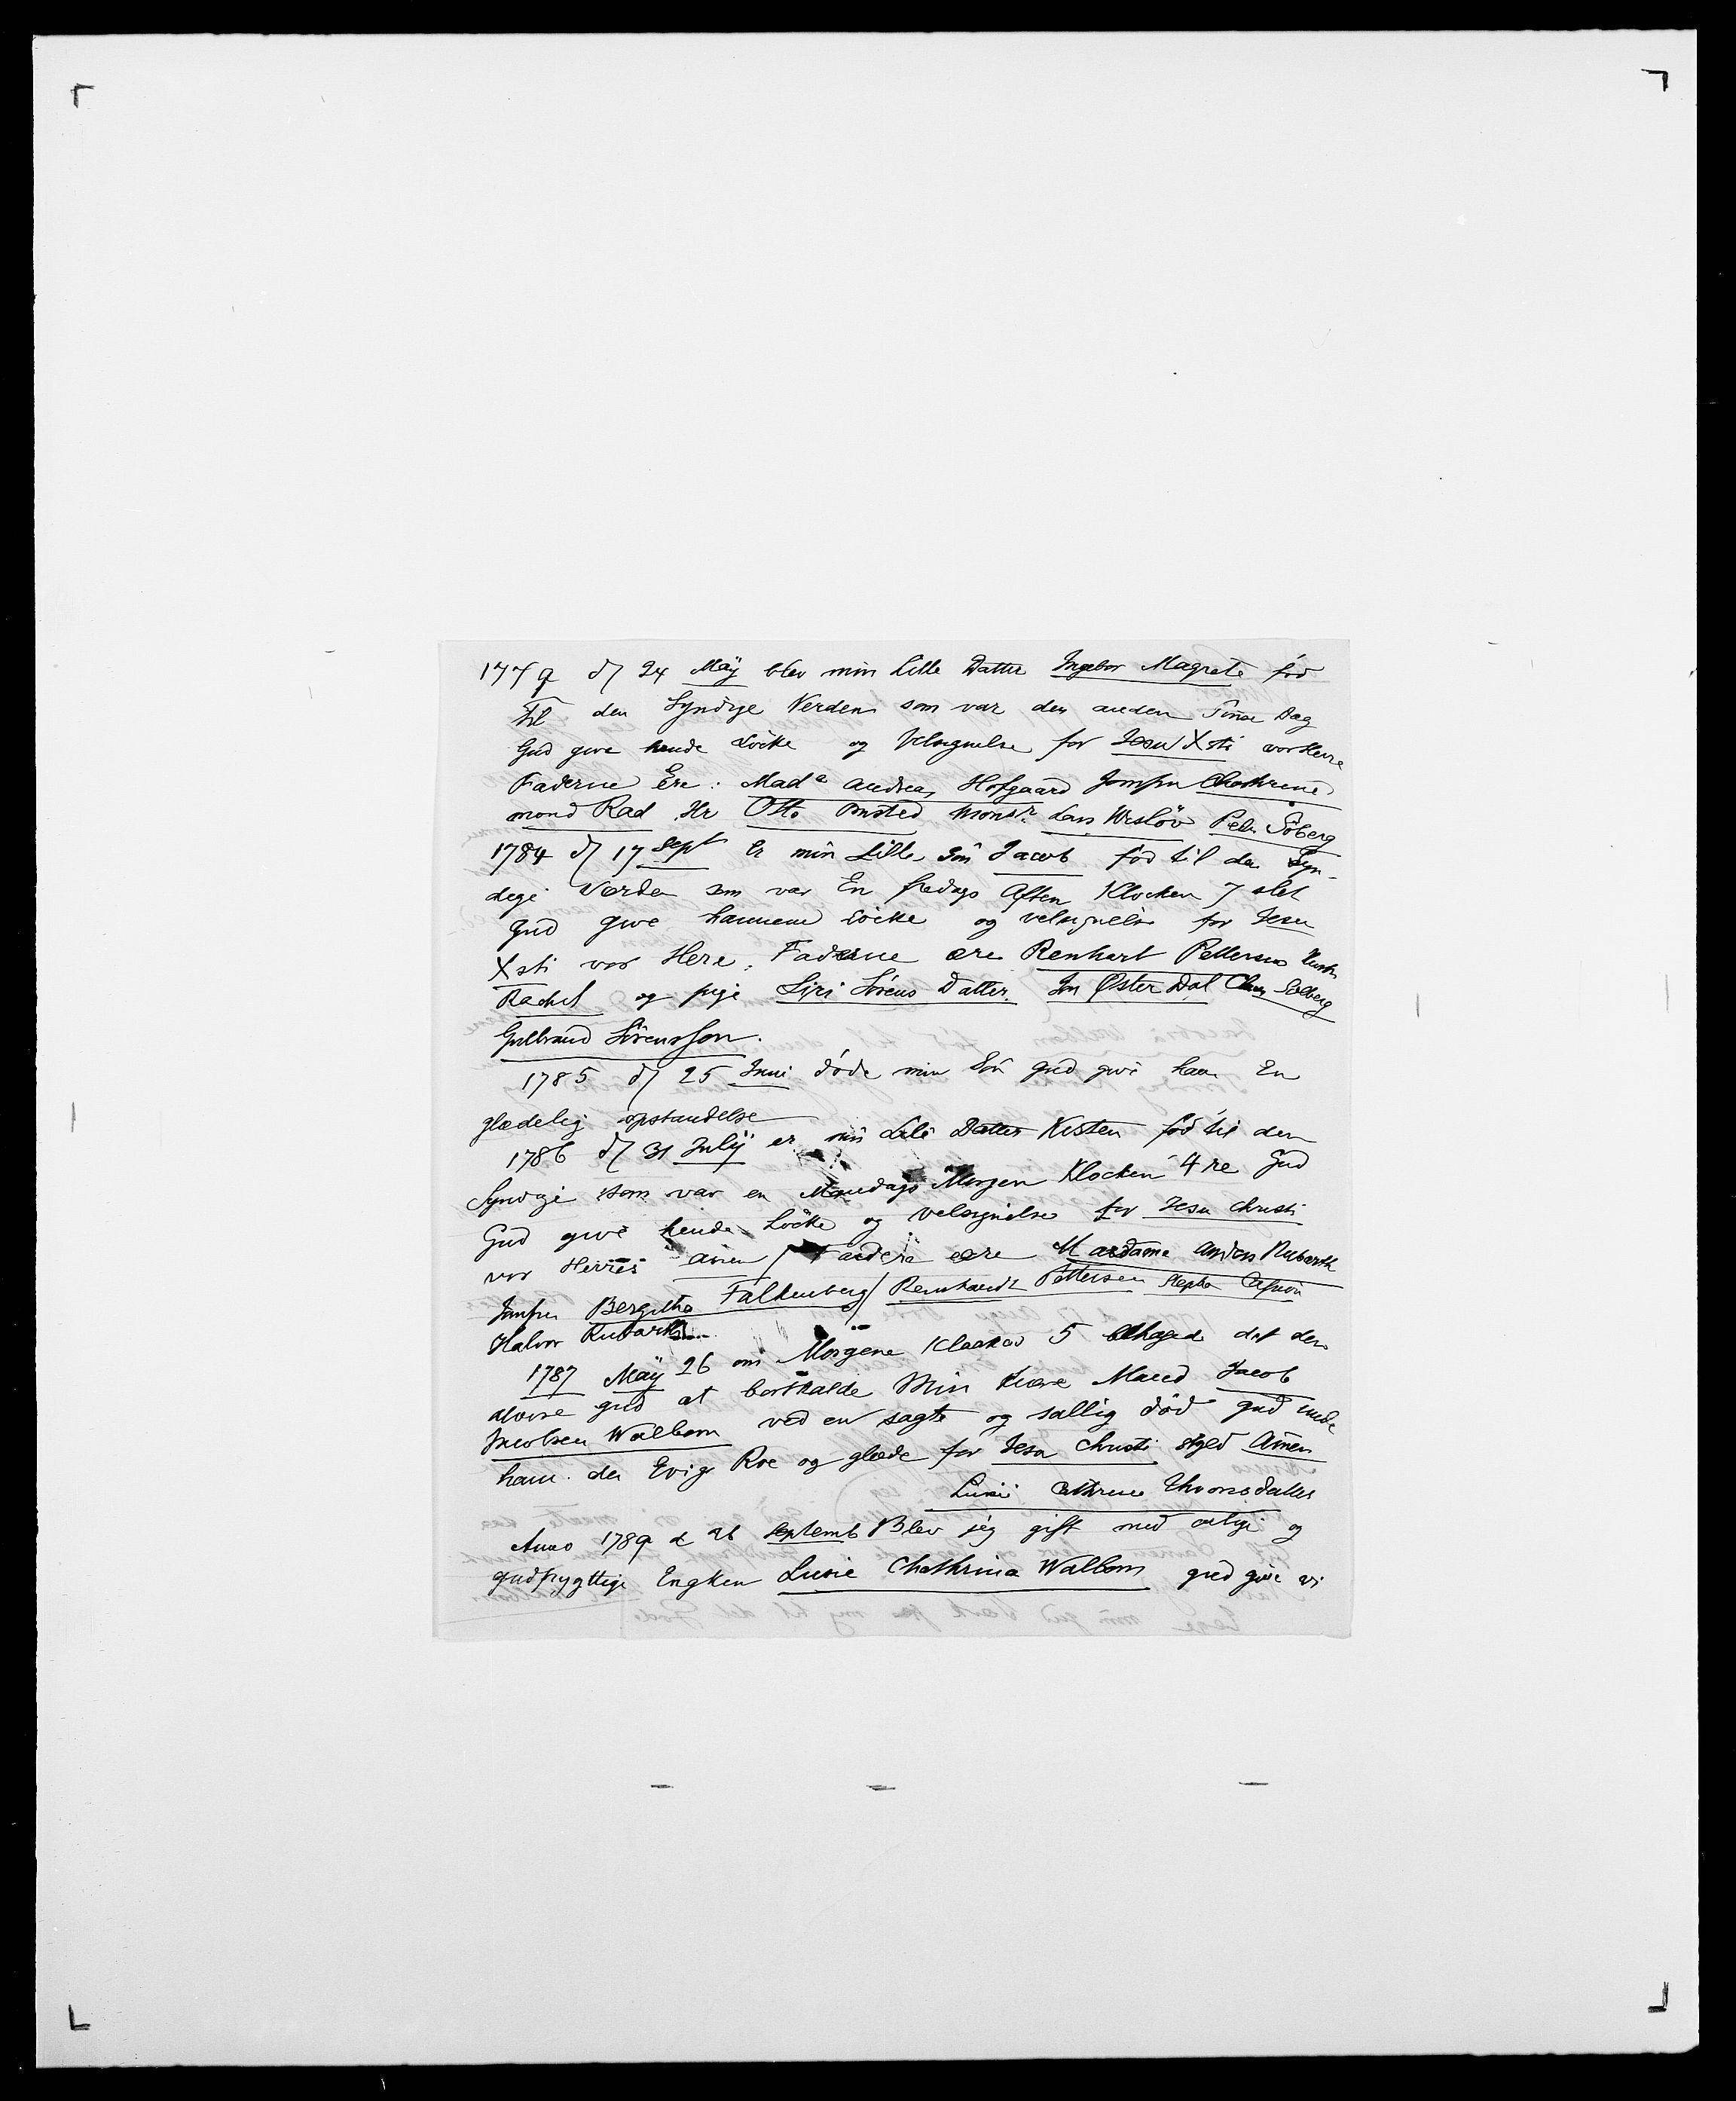 1779 d/ 24 Maÿ blev min Lille Datter Ingebor Magrete fød
til den Syndige Verden som var den anden Pinse Dag
Gud give hende Löcke og Velsignelse for Jesu Xsti vor Herre
Faderne Ere: Mad^e Andreas Hofgaard Jomfru Chathrene
mond Rad Hr Otto Onsted Mons^r Lars Wesløv Peder Söberg
1784 d/ 17 Sept Er min Lille Sön Jacob fød til den Syn-
dige Verden som var En fredags Aften Klocken 7 slet
Gud give hannem Löcke og velsignelse for Jesu
Xsti vor Herre. Faderne ere Renhart Pettersen Hustr
Rachel og pige Siri Sörens Datter. Jon Øster Dal Claus Solberg
Gulbrand Sörensson.
1785 d/ 25 Juni døde min Sön gud give ham En
glædelig opstandelse
1786 d/ 31 Julÿ er min Lile Datter Kisten fød til den
Syndige som var en Mandags Morgen Klocken 4 re Gud
Gud give hende Löcke og velsignelse for Jesu Christi
vor Herres amen / Faadere ere Madame Anders Rubarth
Jomfru Bergitha Falkenberg / Renhardt Pettersen
Halvor Rubarth
1787 Maÿ 26 om Morgene Klacken 5 behaged det den
alvise gud at bortkalde Min Kiere Mand Jacob
Jacobsen Walbom ved en sagte og sallig død gud unde
ham den Evige Roe og glæde for Jesu Christi skyld Amen
Lusie Cathrine Thorsdatter
Anno 1789 d 26 Septemb Blev jeg gift med ærlige og
gudfrygttige Engken Lusie Chathrina Walbom gud give vi